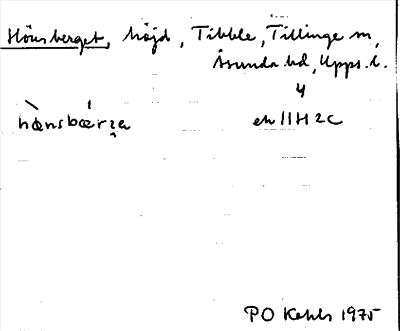 Hönsberget, höjd, Tibble, Tillinge sn,
Åsunda hd, Upps. l.
4
hø̀nsbǽrʒa ek 11H2c
PO Kehls 1975